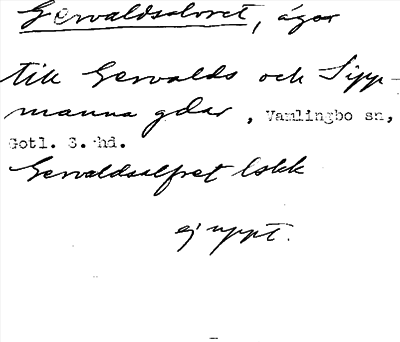 Gervaldsalvret, ägor
till Gervalds och Sipp-
manna gdar, Vamlingbo sn,
Gotl. S. hd.
Gervaldsalfret lokk
ej uppt.